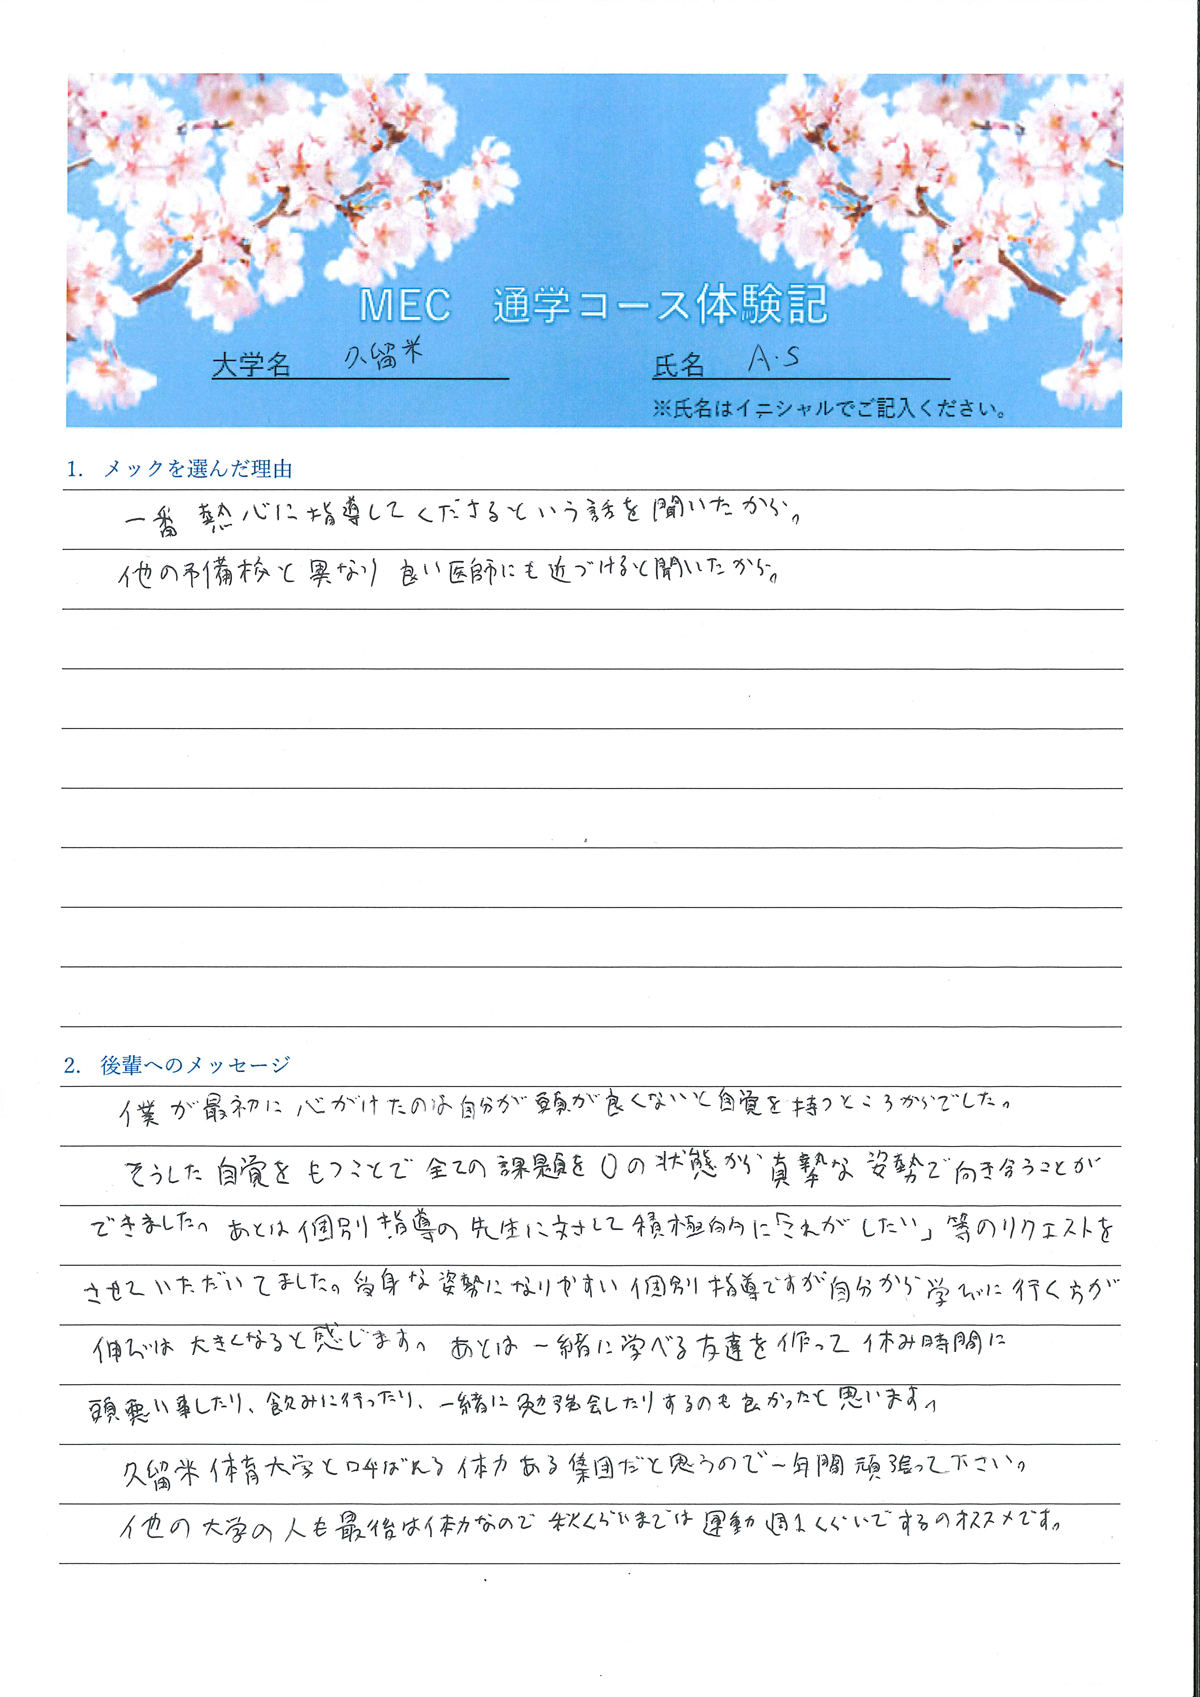 MEC 通学コース体験記
大学名 久留米 氏名 A.S
※氏名はイニシャルでご記入ください。
1. メックを選んだ理由
一番 熱心に指導してくださるという話を聞いたから。
他の予備校と異なり 良い医師にも近づけると聞いたから。
2. 後輩へのメッセージ
僕が最初に心がけたのは自分が頭が良くないと自覚を持つところからでした。
そうした自覚をもつことで全ての課題を0の状態から真摯な姿勢で向き合うことが
できました。あとは個別指導の先生に対して積極的に「これがしたい」等のリクエストを
させていただいてました。受身な姿勢になりやすい個別指導ですが自分から学びに行く方が
伸びは大きくなると感じます。あとは一緒に学べる友達を作って休み時間に
頭悪い事したり、飲みに行ったり、一緒に勉強会したりするのも良かったと思います。
久留米体育大学と呼ばれる体力ある集団だと思うので一年間頑張って下さい。
他の大学の人も最後は体力なので秋くらいまでは運動週1くらいでするのオススメです。